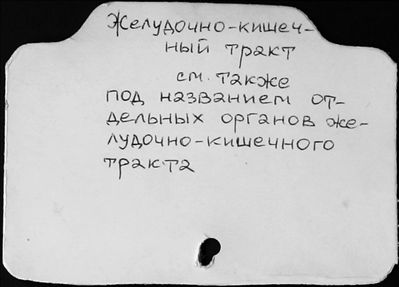 Желудочно-кишеч-
ный тракт
см. также
под названием от-
дельных органов же-
лудочно-кишечного
тракта